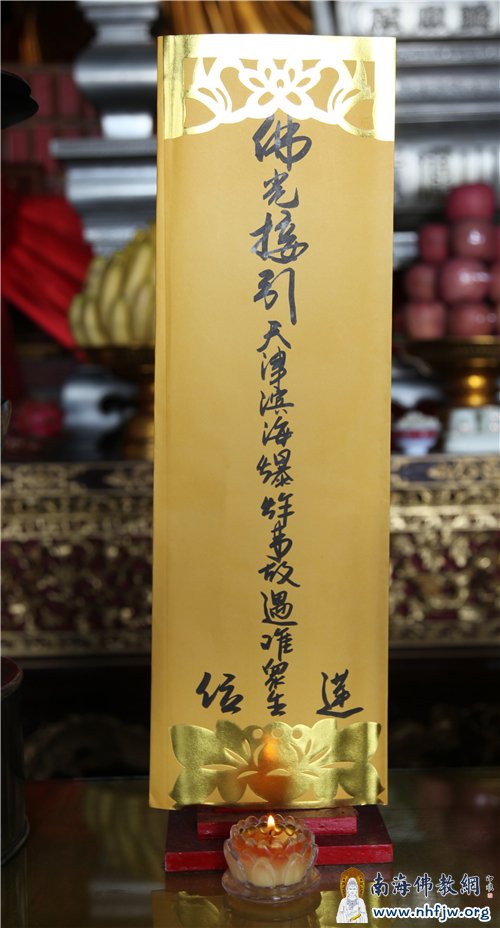 佛光接引天津滨海爆炸事故遇难众生
莲
位
南海佛教網
www.nhfjw.org